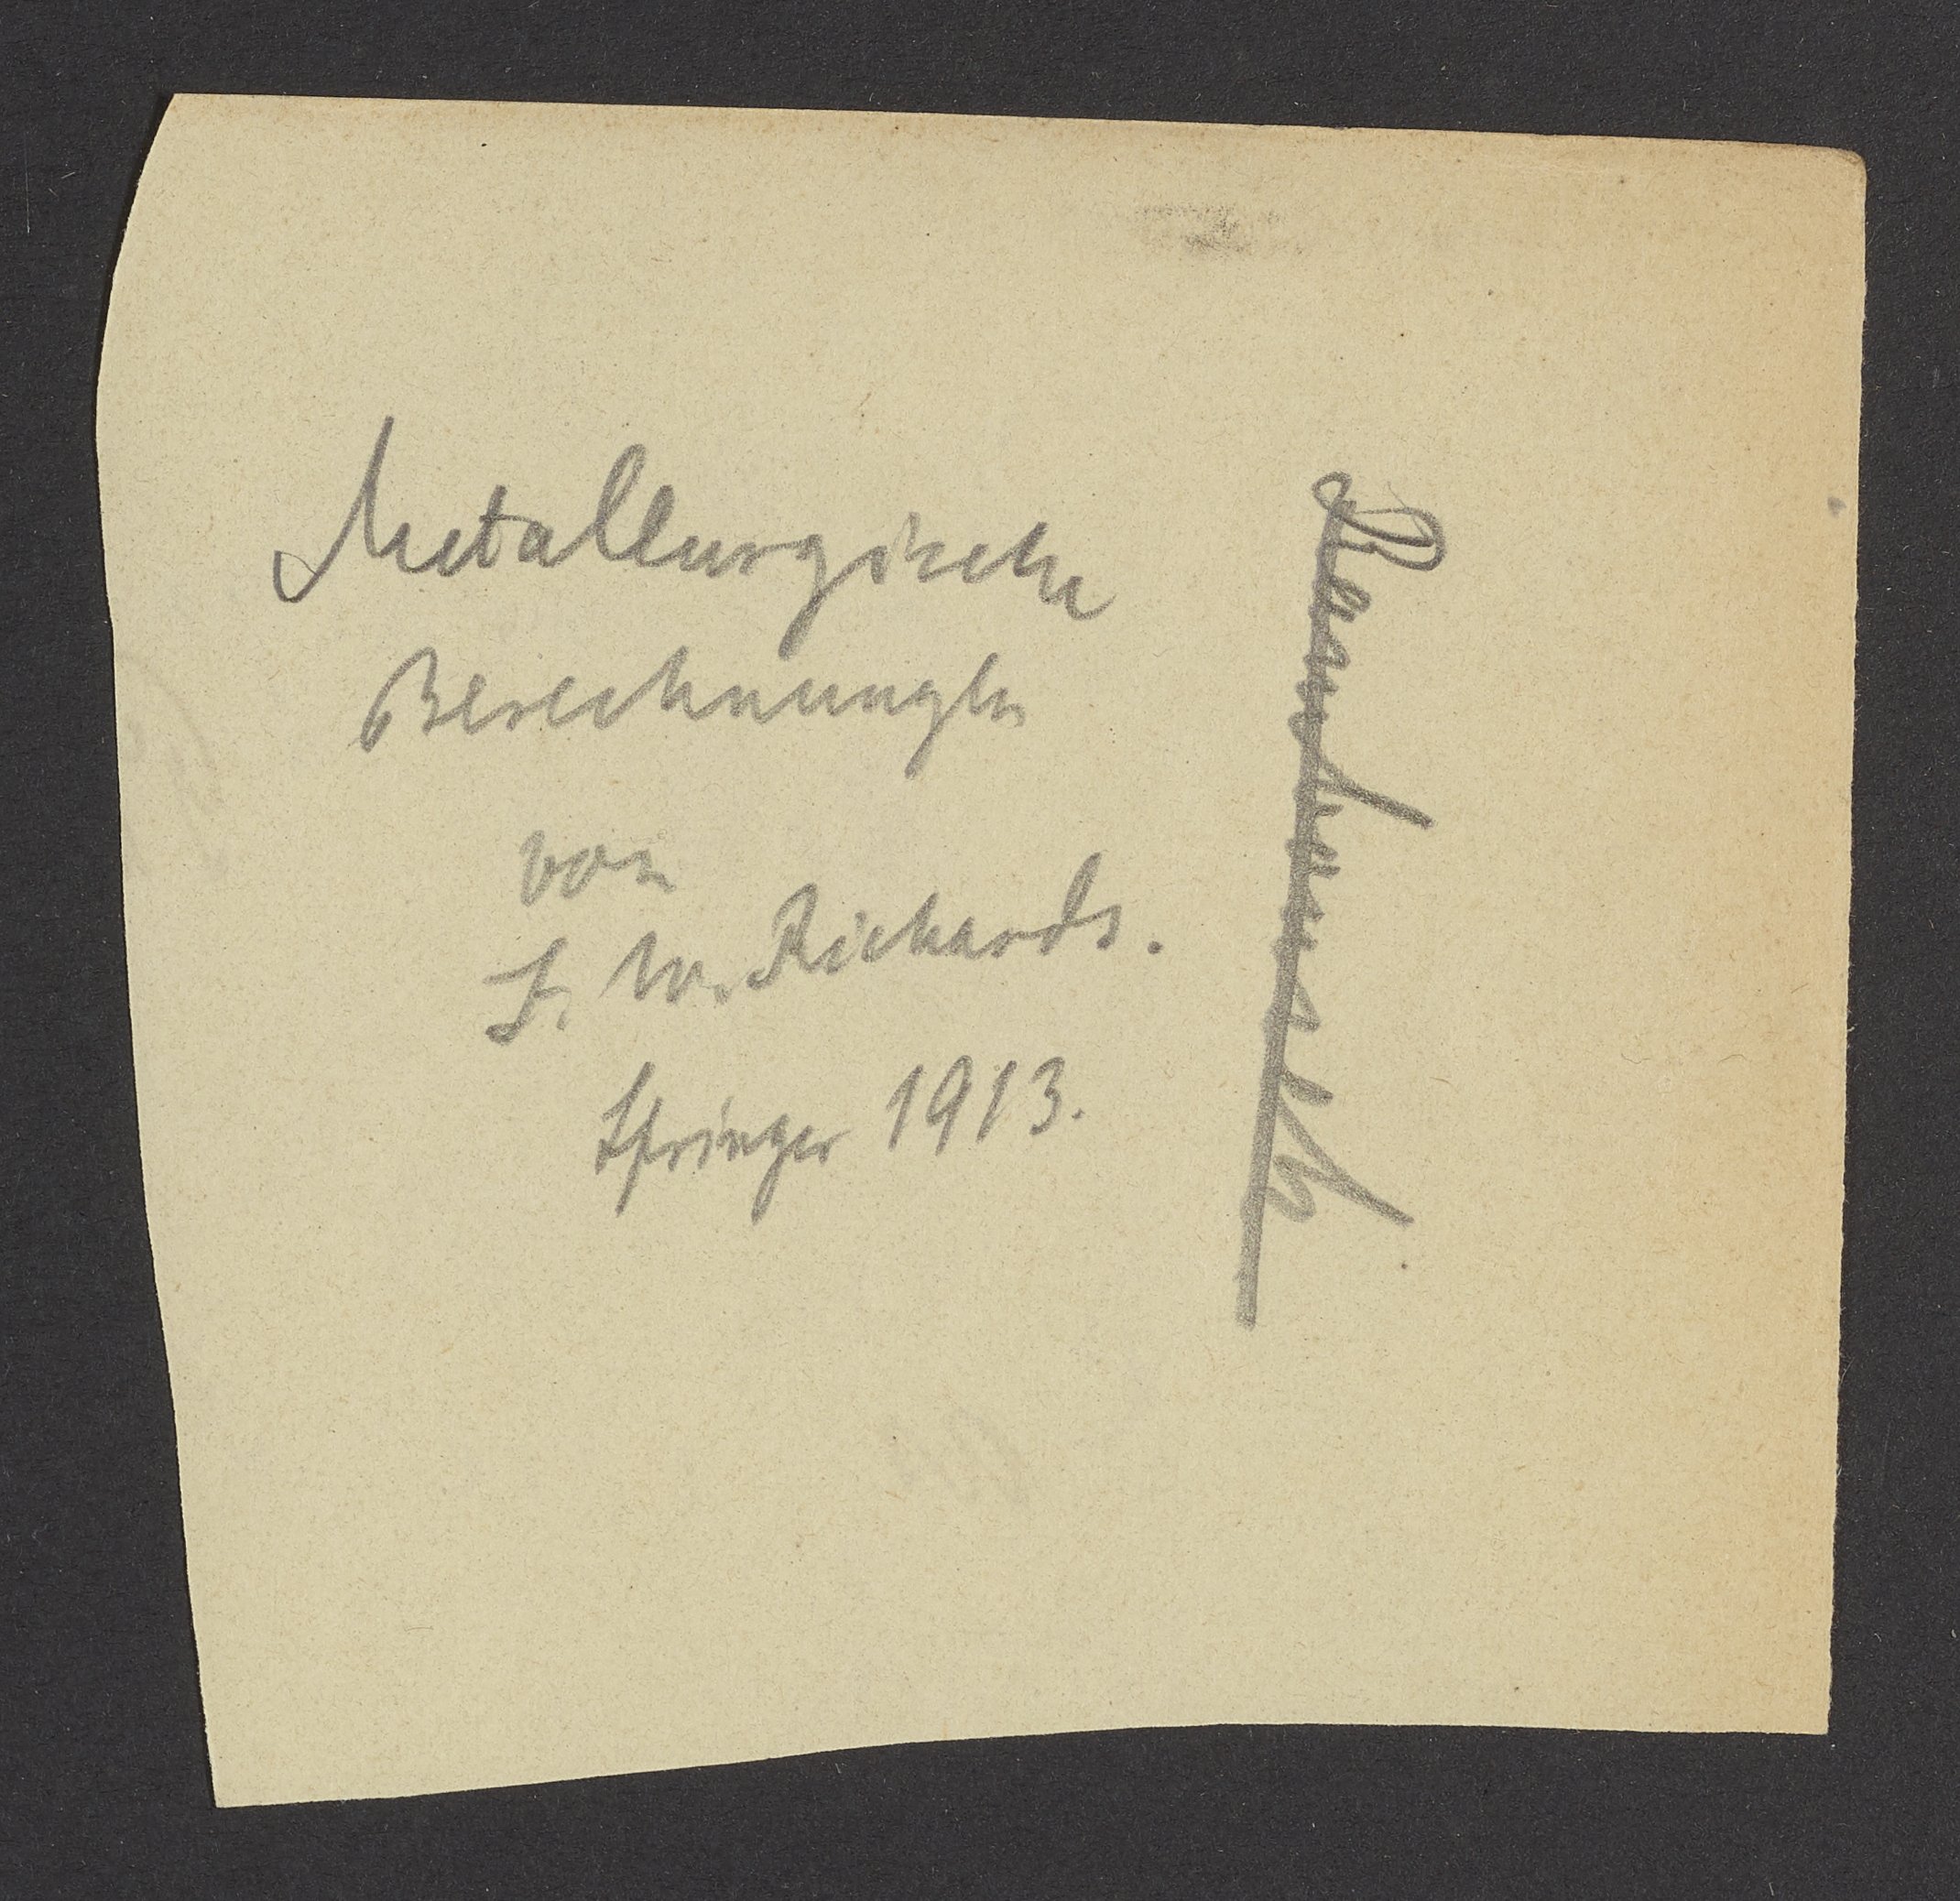 Metallurgische
Berechnungen
von
J. W. Richards.
Springer 1913.